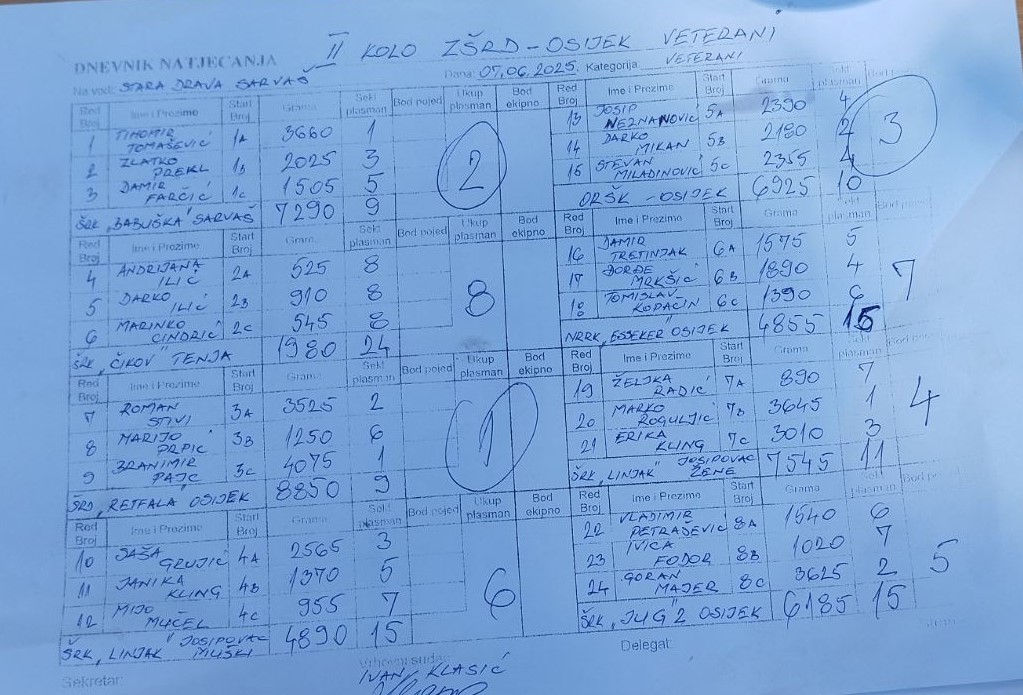 II KOLO ZŠRD - OSIJEK VETERANI
DNEVNIK NATJECANJA
Na vodi: STARA DRAVA SARVAŠ Dana: 07.06.2025. Kategorija: VETERANI
Red Broj Ime i Prezime Start Broj Grama Sekt plasman Bod pojed Ukup plasman Bod ekipno
1 TIHOMIR TOMAŠEVIĆ 1A 3660 1
2 ZLATKO PREKL 1B 2025 3
3 DAMIR FARČIĆ 1C 1505 5
ŠRK „BABUŠKA" SARVAŠ 7290 9 2
Red Broj Ime i Prezime Start Broj Grama Sekt plasman Bod pojed Ukup plasman Bod ekipno
4 ANDRIJANA ILIĆ 2A 525 8
5 DARKO ILIĆ 2B 910 8
6 MARINKO CINDRIĆ 2C 545 8
ŠRK „ČIKOV" TENJA 1980 24 8
Red Broj Ime i Prezime Start Broj Grama Sekt plasman Bod pojed Ukup plasman Bod ekipno
7 ROMAN STIVI 3A 3525 2
8 MARIJO PRPIĆ 3B 1250 6
9 BRANIMIR PAJC 3C 4075 1
ŠRD „RETFALA" OSIJEK 8850 9 1
Red Broj Ime i Prezime Start Broj Grama Sekt plasman Bod pojed Ukup plasman Bod ekipno
10 SAŠA GRUJIĆ 4A 2565 3
11 JANIKA KLING 4B 1370 5
12 MIJO MUČEL 4C 955 7
ŠRK „LINJAK" JOSIPOVAC MUŠKI 4890 15 6
Red Broj Ime i Prezime Start Broj Grama Sekt plasman Bod pojed
13 JOSIP NEZNANOVIĆ 5A 2390 4
14 DARKO MIKAN 5B 2180 2
15 STEVAN MILADINOVIĆ 5C 2355 4
ORŠK - OSIJEK 6925 10 3
Red Broj Ime i Prezime Start Broj Grama Sekt plasman Bod pojed
16 DAMIR TRETINJAK 6A 1575 5
17 ĐORĐE MRKŠIĆ 6B 1890 4
18 TOMISLAV KOPAČIN 6C 1390 6
NRRK „ESSEKER" OSIJEK 4855 15 7
Red Broj Ime i Prezime Start Broj Grama Sekt plasman Bod
19 ŽELJKA RADIĆ 7A 890 7
20 MARKO ROGULJIĆ 7B 3645 1
21 ERIKA KLING 7C 3010 3
ŠRK „LINJAK" JOSIPOVAC ŽENE 7545 11 4
Red Broj Ime i Prezime Start Broj Grama Sekt plasman Bod
22 VLADIMIR PETRAŠEVIĆ 8A 1540 6
23 IVICA FODOR 8B 1020 7
24 GORAN MAJER 8C 3625 2
ŠRK „JUG" 2 OSIJEK 6185 15 5
Sekretar: Vrhovni sudac: Delegat:
IVAN KLASIĆ